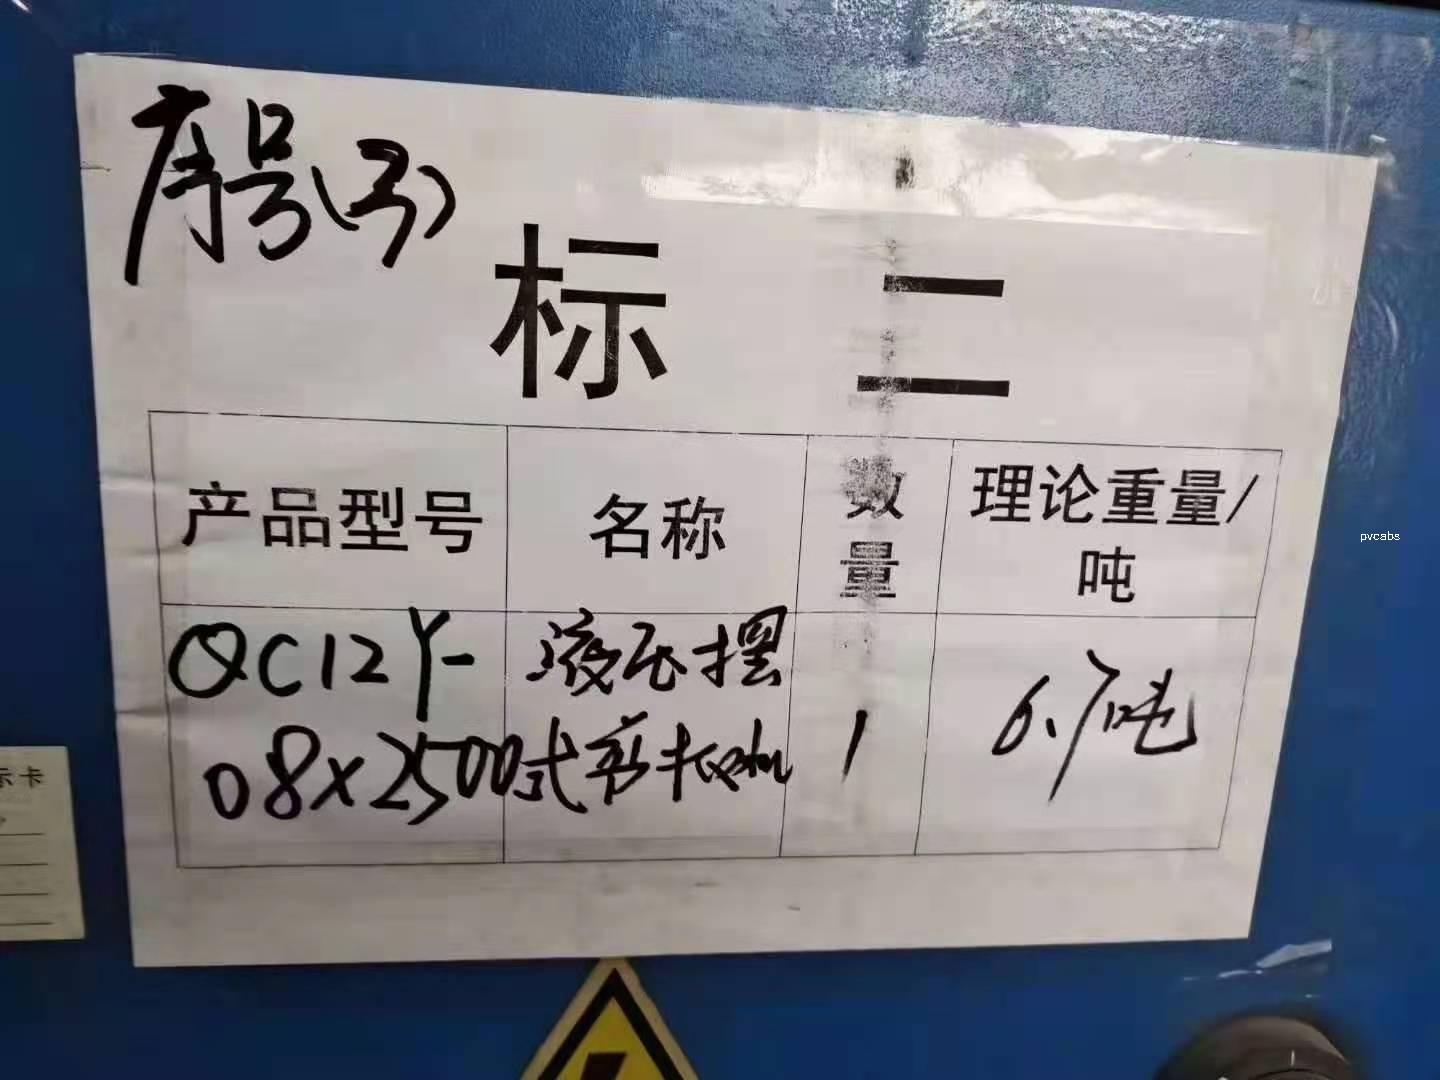 序号(3)
标 二
产品型号 名称 数量 理论重量/吨
QC12Y-08×2500 液压摆式剪板机 1 6.7吨
示卡
pvcabs